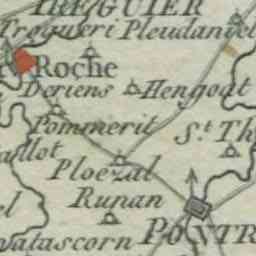 TREGUIER
Trogueri Pleudaniel
Roche
Deriens
Hengoat
Pommerit
St. Th
Ploezal
Runan
atascorn
PONTR